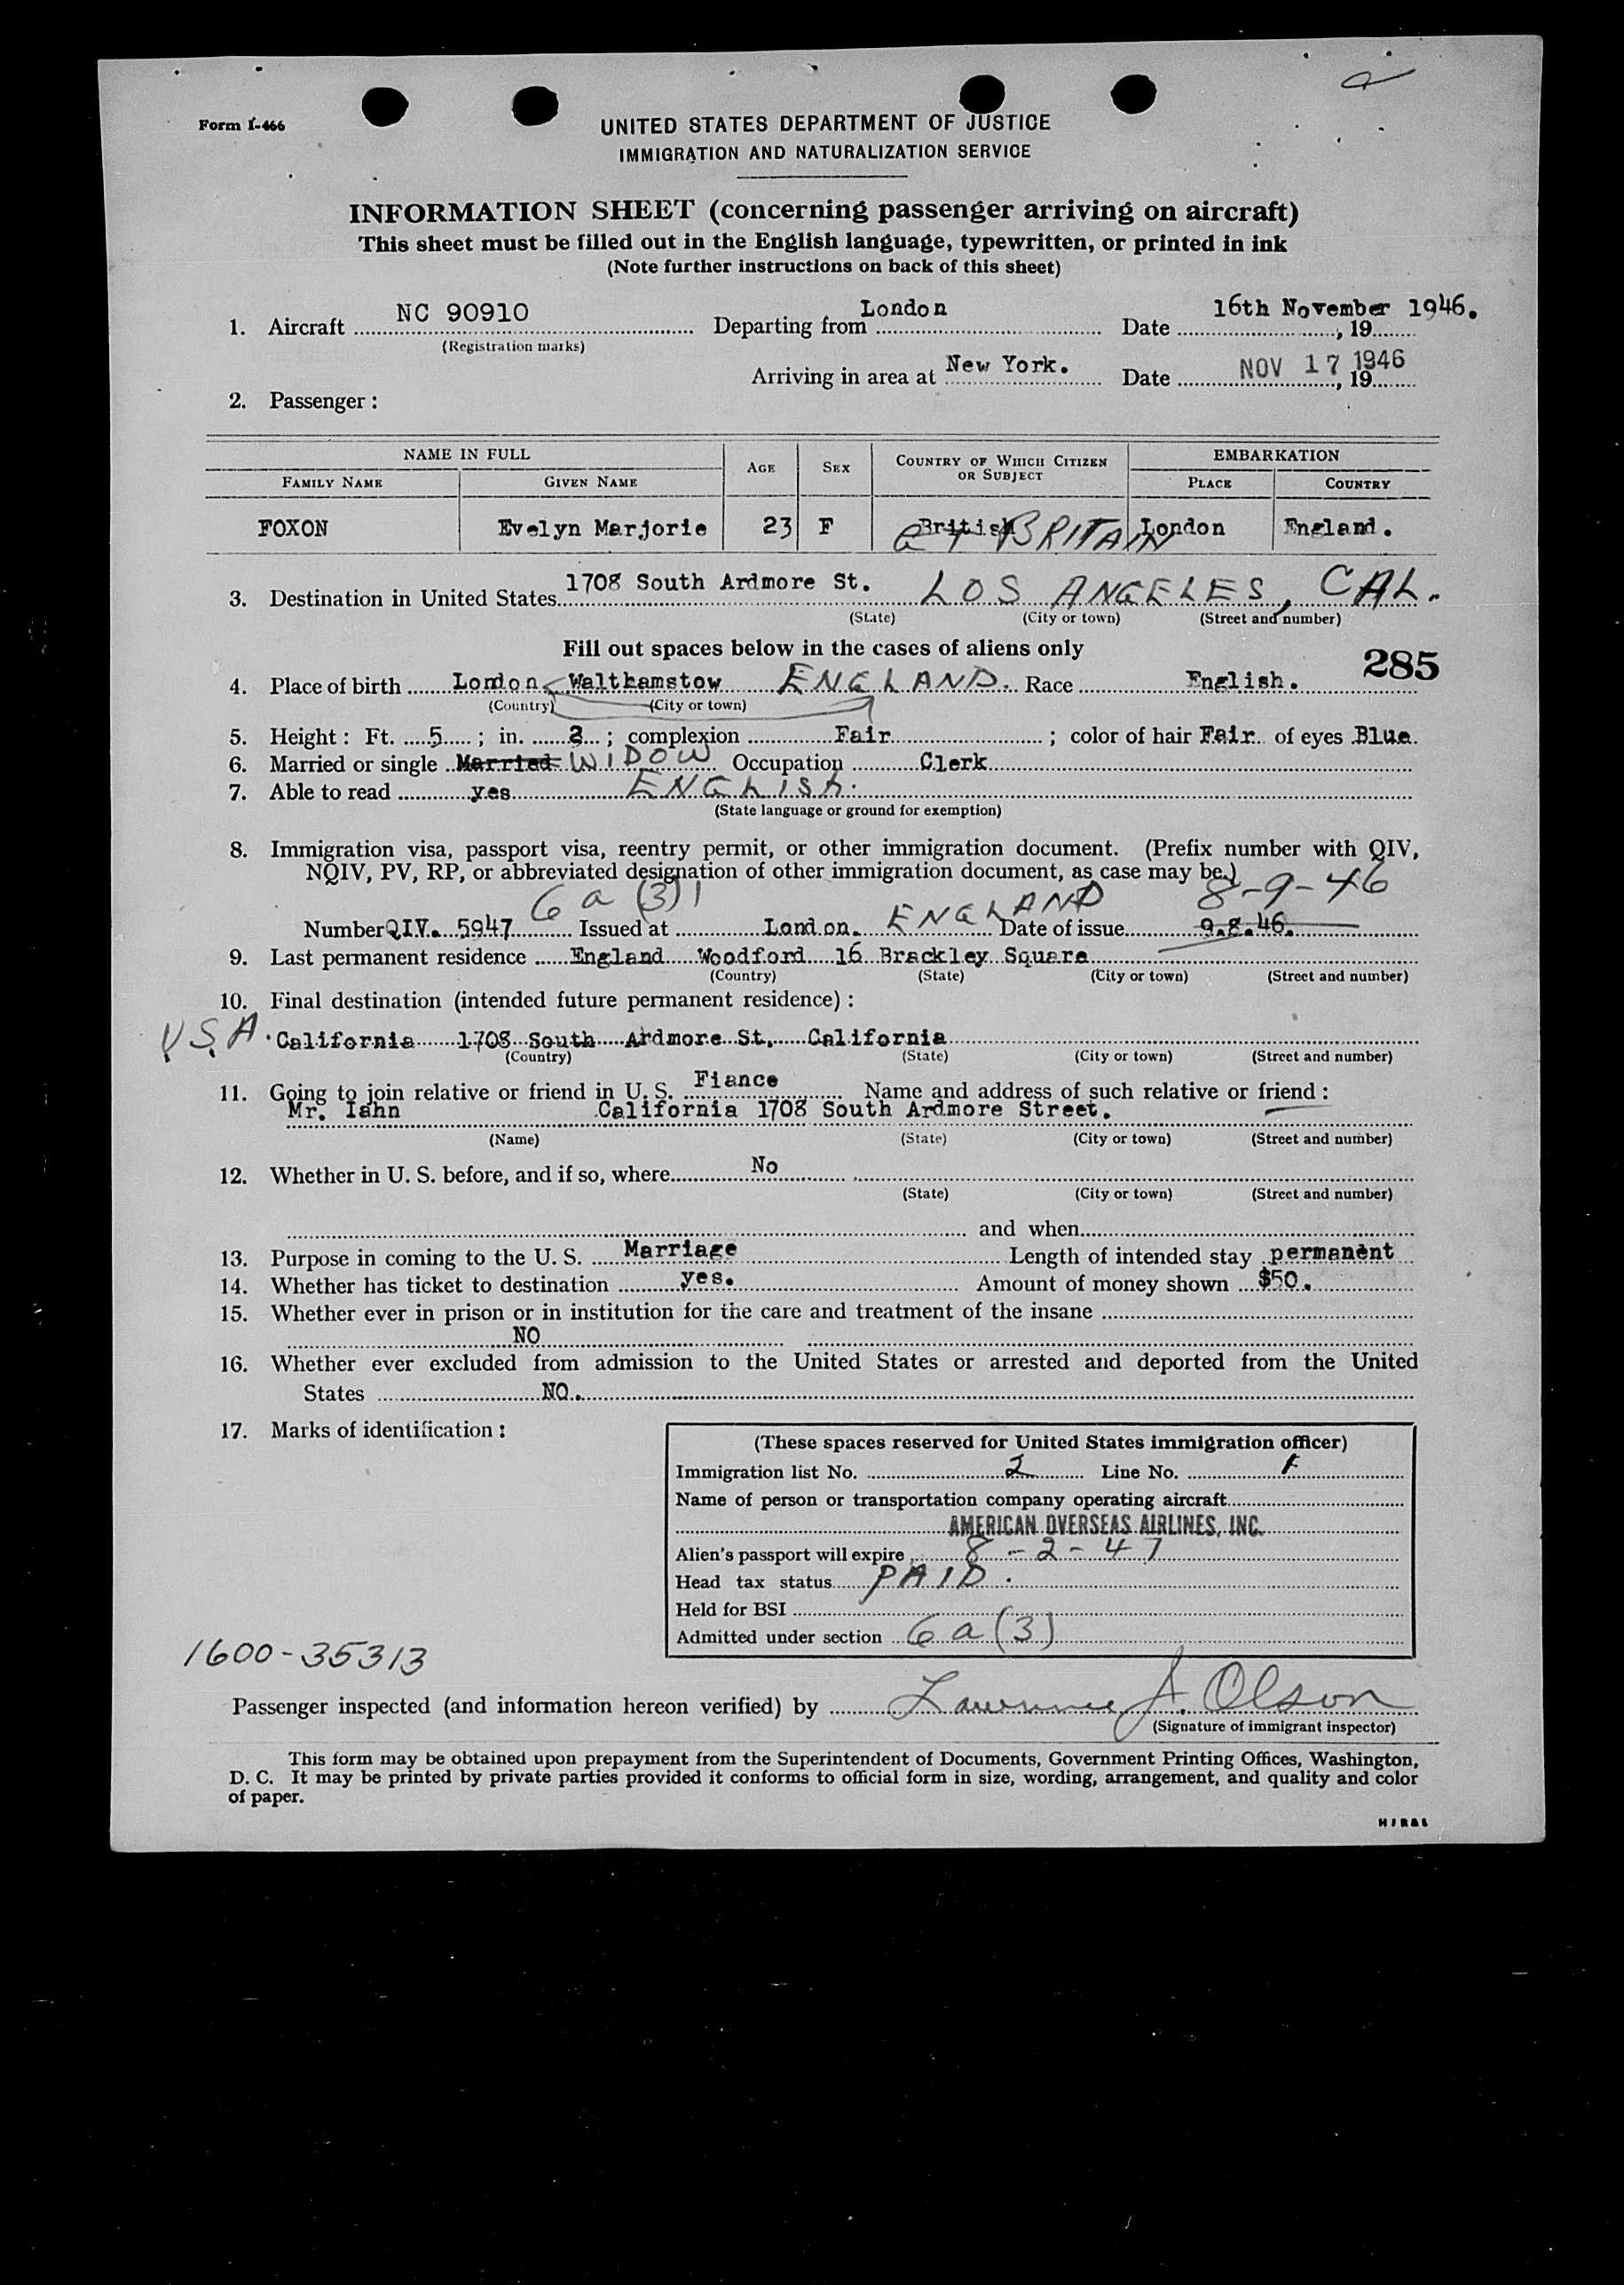 Form I-466
UNITED STATES DEPARTMENT OF JUSTICE
IMMIGRATION AND NATURALIZATION SERVICE
INFORMATION SHEET (concerning passenger arriving on aircraft)
This sheet must be filled out in the English language, typewritten, or printed in ink
(Note further instructions on back of this sheet)
1. Aircraft NC 90910 Departing from London Date 16th November 1946. , 19
(Registration marks)
Arriving in area at New York. Date NOV 17 1946 , 19
2. Passenger :
NAME IN FULL AGE SEX COUNTRY OF WHICH CITIZEN OR SUBJECT EMBARKATION
FAMILY NAME GIVEN NAME PLACE COUNTRY
FOXON Evelyn Marjorie 23 F British GT BRITAIN London England.
3. Destination in United States 1708 South Ardmore St. LOS ANGELES, CAL.
(State) (City or town) (Street and number)
Fill out spaces below in the cases of aliens only
285
4. Place of birth London Walthamstow ENGLAND. Race English.
(Country) (City or town)
5. Height : Ft. 5 ; in. ; complexion Fair ; color of hair Fair of eyes Blue
6. Married or single Married WIDOW Occupation Clerk
7. Able to read yes ENGLISH.
(State language or ground for exemption)
8. Immigration visa, passport visa, reentry permit, or other immigration document. (Prefix number with QIV,
NQIV, PV, RP, or abbreviated designation of other immigration document, as case may be.)
6 a (3) 8-9-46
Number QIV. 5947 Issued at London. ENGLAND Date of issue 9.8.46.
9. Last permanent residence England Woodford 16 Brackley Square
(Country) (State) (City or town) (Street and number)
10. Final destination (intended future permanent residence) :
U.S.A. California 1708 South Ardmore St. California
(Country) (State) (City or town) (Street and number)
11. Going to join relative or friend in U. S. Fiance Name and address of such relative or friend :
Mr. Iahn California 1708 South Ardmore Street.
(Name) (State) (City or town) (Street and number)
12. Whether in U. S. before, and if so, where No
(State) (City or town) (Street and number)
and when
13. Purpose in coming to the U. S. Marriage Length of intended stay permanent
14. Whether has ticket to destination yes. Amount of money shown $50.
15. Whether ever in prison or in institution for the care and treatment of the insane
NO
16. Whether ever excluded from admission to the United States or arrested and deported from the United
States NO.
17. Marks of identification :
(These spaces reserved for United States immigration officer)
Immigration list No. 2 Line No.
Name of person or transportation company operating aircraft
AMERICAN OVERSEAS AIRLINES, INC.
Alien's passport will expire 8-2-47
Head tax status PAID.
Held for BSI
Admitted under section 6 a (3)
1600-35313
Passenger inspected (and information hereon verified) by Lawrence J. Olson
(Signature of immigrant inspector)
This form may be obtained upon prepayment from the Superintendent of Documents, Government Printing Offices, Washington,
D. C. It may be printed by private parties provided it conforms to official form in size, wording, arrangement, and quality and color
of paper.